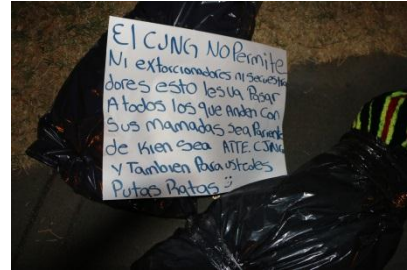 El CJNG No Permite
Ni extorcionadores ni secuestra
dores esto les va Pasar
A todos los que Anden Con
Sus Mamadas Sea Pariente
de Kien Sea ATTE. CJNG
Y Tambien Para ustedes
Putas Ratas :)